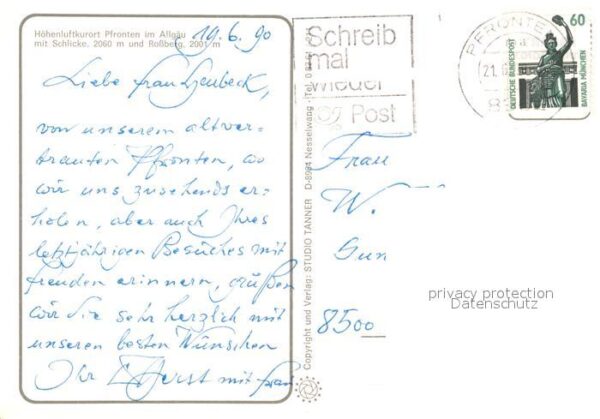 Höhenluftkurort Pfronten im Allgäu
mit Schlicke, 2060 m und Roßberg, 2001 m
19.6.90
Liebe Frau
von unserem altver-
trauten Pfronten, wo
wir uns zusehends er-
holen, aber auch Ihres
letztjährigen Besuches mit
Freuden erinnern, grüßen
wir Sie sehr herzlich mit
unseren besten Wünschen
Ihr mit Frau
Copyright und Verlag: STUDIO TANNER D-8964 Nesselwang · Tel.
Schreib
mal
wieder
Post
PFRONTEN
21.
60
DEUTSCHE BUNDESPOST
BAVARIA MÜNCHEN
Frau
W.
Gun
8500
privacy protection
Datenschutz